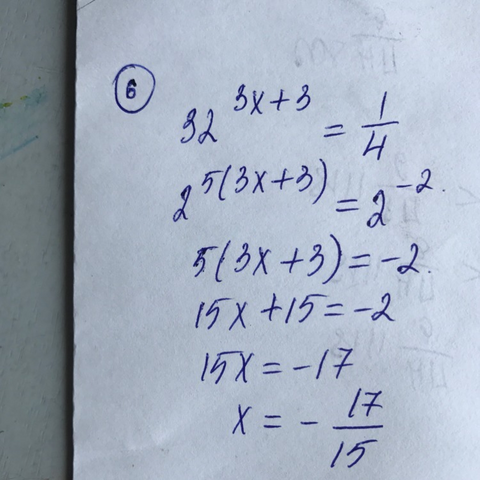 6
32^{3x+3} = \frac{1}{4}
2^{5(3x+3)} = 2^{-2}.
5(3x+3) = -2.
15x + 15 = -2
15x = -17
x = -\frac{17}{15}